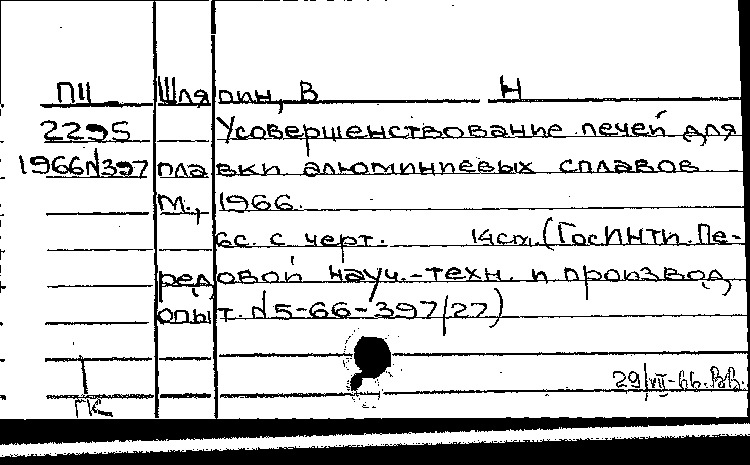 ПЦ Шляпин, В Н
2295 Усовершенствование печей для
1966 №397 плавки алюминиевых сплавов
М., 1966.
6с. с черт. 14см. (ГосИНТИ. Пе-
редовой науч.-техн. и производ,
опыт. №5-66-397/27)
29/VII-66. ВВ.
ПК